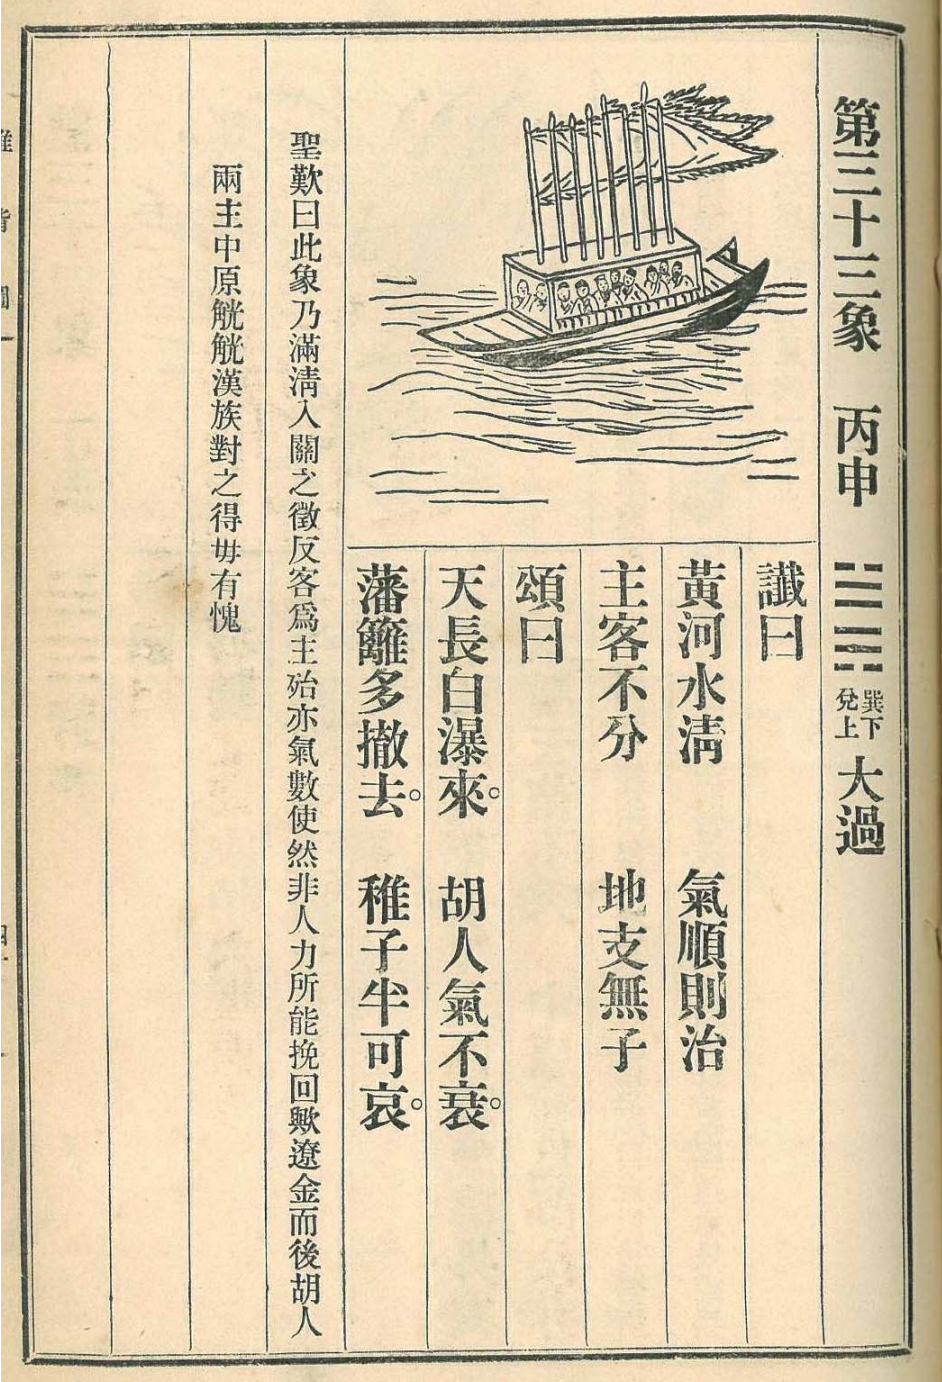 第三十三象　丙申　巽下兌上　大過
讖曰
黃河水清　氣順則治
主客不分　地支無子
頌曰
天長白瀑來。胡人氣不衰。
藩籬多撤去。稚子半可哀。
聖歎曰此象乃滿清入關之徵反客爲主殆亦氣數使然非人力所能挽回歟遼金而後胡人
兩主中原觥觥漢族對之得毋有愧